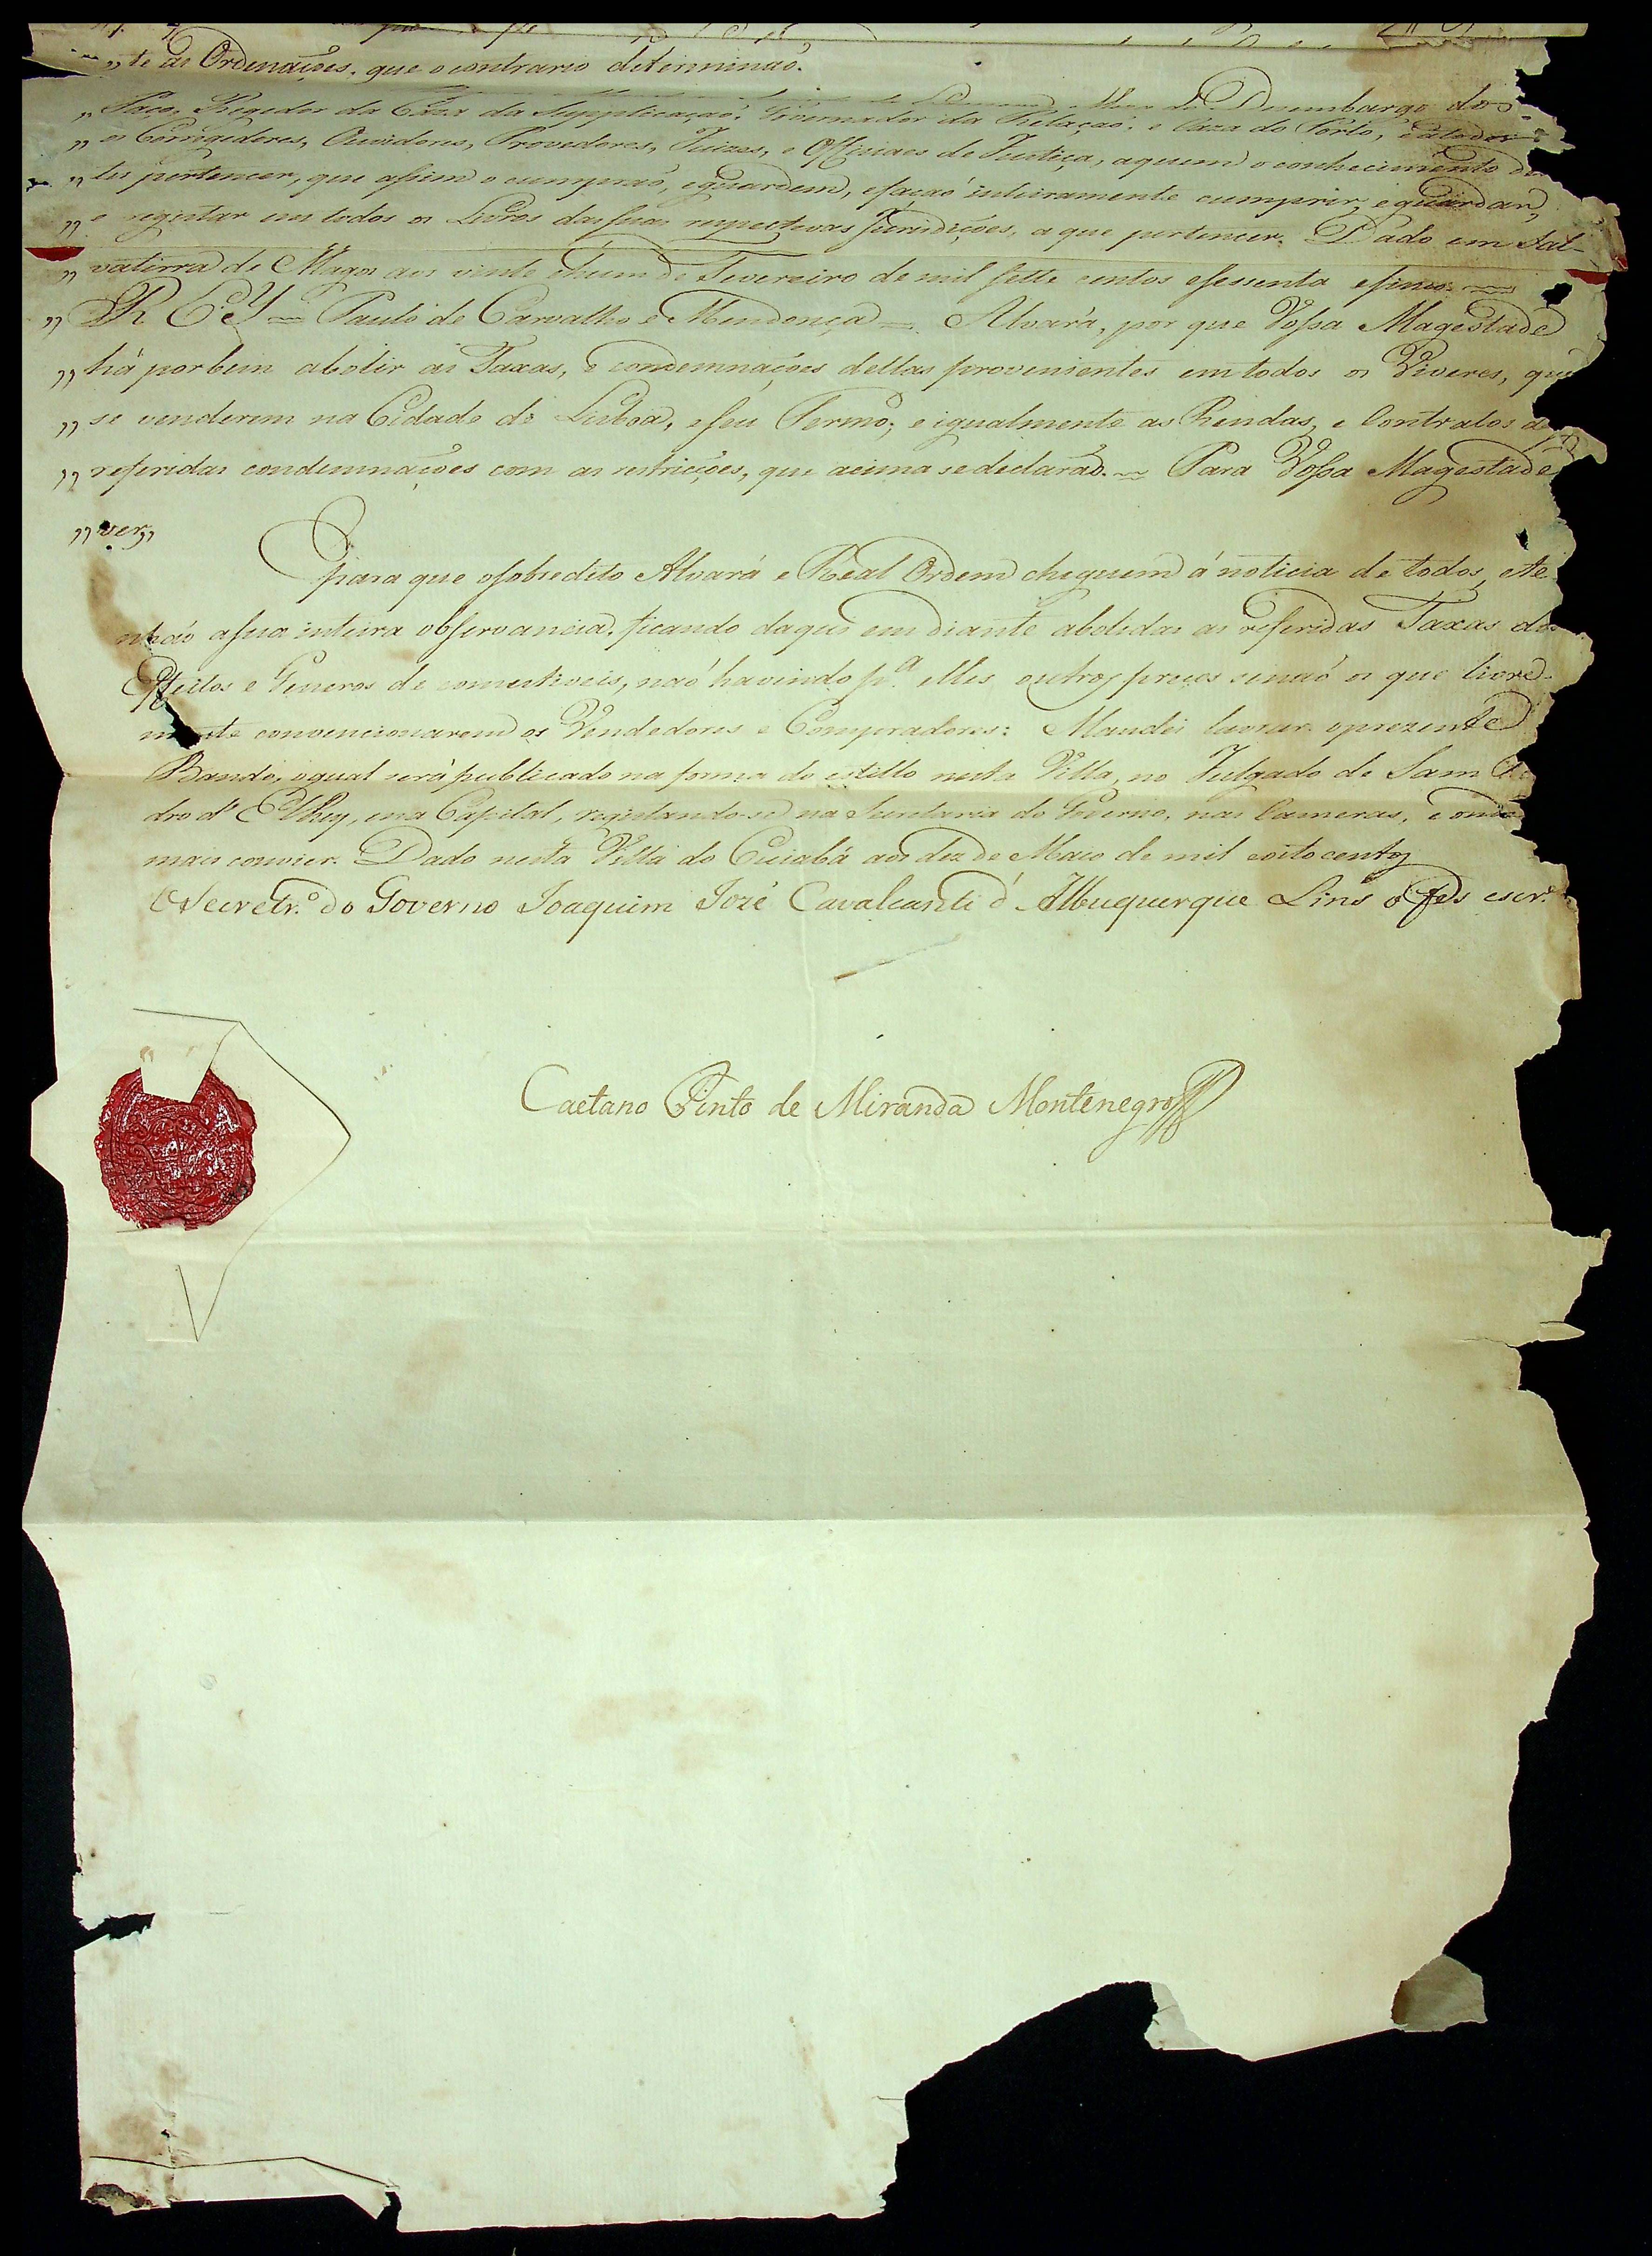 „te as Ordenações, que o contrario determinaõ.
„Paço, Regedor da Caza da Supplicaçaõ, Governador da Relaçaõ, e Caza do Porto, e a todos
„os Corregedores, Ouvidores, Provedores, Juizes, e Officiaes de Justiça, aquem o conhecimento de
„tes pertencer, que assim o cumpraõ, eguardem, efaçaõ inteiramente cumprir, eguardar,
„e registar em todos os Livros das suas respectivas Jurisdições, a que pertencer. Dado em Sal-
„vaterra de Magos aos vinte ehum de Fevereiro de mil sette centos esessenta esinco =
„REY = Paulo de Carvalho e Mendonça = Alvará, por que Vossa Magestade
„há porbem abolir as Taxas, e condemnações dellas provenientes em todos os Viveres, que
„se venderem na Cidade de Lisboa, eseu Termo; e igualmente as Rendas, e Contratos das
„referidas condemnações com as restricções, que acima se declaraõ. = Para Vossa Magestade
„ver„
para que osobredito Alvará e Real Ordem cheguem á noticia de todos, ete
nhaõ asua inteira observancia, ficando daqui em diante abolidas as referidas Taxas dos
Effeitos e Generos de comestiveis, naõ havendo p.ª elles outros preços senaõ os que livre-
mente convencionarem os Vendedores e Compradores: Mandei lavrar oprezente
Bando, oqual será publicado na forma do estillo nesta Villa, no Julgado de Sam Pe
dro d'ElRey, ena Capital, registando-se na Secretaria do Governo, nas Cameras, e onde
mais convier. Dado nesta Villa do Cuiabá aos dez de Maio de mil eoitocentos
OSecretr.º do Governo Joaquim Jozé Cavalcanti d'Albuquerque Lins o fes escr.
Caetano Pinto de Miranda Montenegro